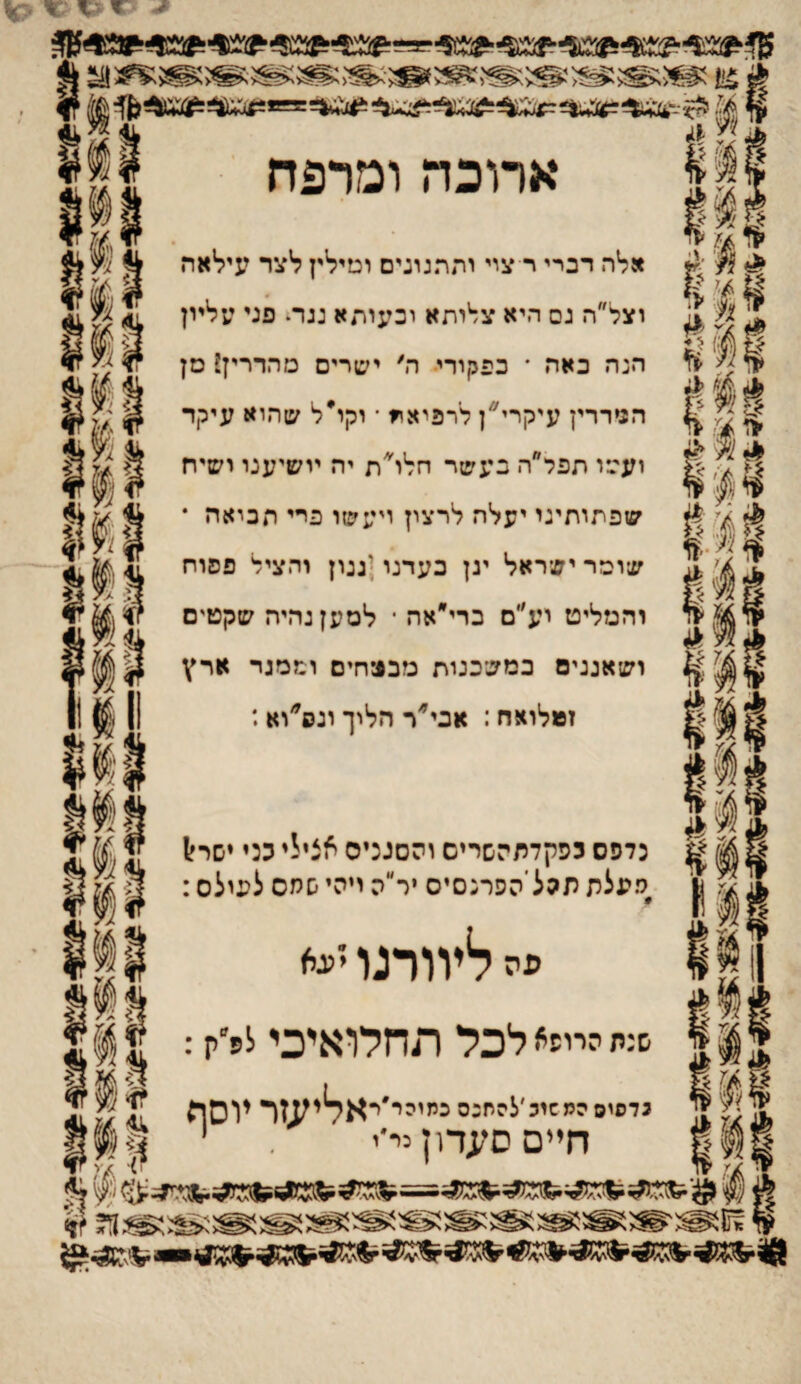 ארוכה ומרפה
אלה דברי ר צוי ותחנונים ומילין לצד עילאה
וצל"ה גם היא צלותא ובעותא נגד. פני עליון
הנה באה · בפקודי ה' ישרים מהדרין! מן
המדרין עיקרי"ן לרפיאות · וקו"ל שהוא עיקר
ועצו תפל"ה בעשר חלו"ת יה יושיענו ושיח
שפתותינו יעלה לרצון ויעשו פרי תבואה ·
שומר ישראל יגן בעדנו גנון והציל פסוח
והמליט וע"ם ברי"אה · למען נהיה שקטים
ושאננים במשכנות מבטחים וממגד ארץ
ומלואה : אכי"ר הליך ונס"וא :
נדפס בפקדת השרים והסגנים אצילי בני ישראל
מעלת תהל' הפרנסים יר"ה ויהי שמם לעולם :
פה ליוורנו יעא
שנת הרופא לכל תחלואיכי לפ"ק :
בדפוס המשוב' להחכם כמוהר'ר אליעזר יוסף
חיים סעדון נר'ו